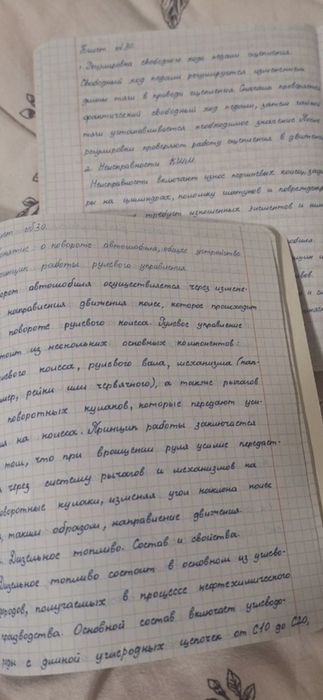 Билет №30.
1. Регулировка свободного хода педали сцепления.
Свободный ход педали регулируется изменением
длины тяги в приводе сцепления. Сначала проверяется
фактический свободный ход педали, затем гайкой
тяги устанавливается необходимое значение. После
регулировки проверяют работу сцепления в движении
2. Неисправности КШМ
Неисправности включают износ поршневых колец, зади
ры на цилиндрах, поломку шатунов и поврежде
требует изношенных элементов и
ет №30.
нятие о повороте автомобиля, общее устройство
ринцип работы рулевого управления
орот автомобиля осуществляется через измене-
направления движения колес, которое происходит
повороте рулевого колеса. Рулевое управление
тоит из нескольких основных компонентов:
левого колеса, рулевого вала, механизма (нап-
мер, рейки или червячного), а также рычагов
поворотных кулаков, которые передают уси-
я на колеса. Принцип работы заключается
том, что при вращении руля усилие передает-
через систему рычагов и механизмов на
оворотные кулаки, изменяя угол наклона колес
, таким образом, направление движения.
. Дизельное топливо. Состав и свойства.
Дизельное топливо состоит в основном из углево-
ородов, получаемых в процессе нефтехимического
производства. Основной состав включает углеводо-
оды с длиной углеродных цепочек от С10 до С20,